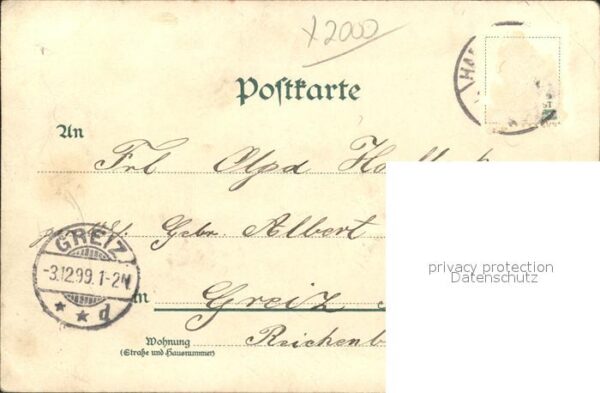 x2000
HA
ST
N
Postkarte
An
Frl Olga
Gebr. Albert
GREIZ
-3.12.99.1-2N
* * d
in Greiz
Wohnung
(Straße und Hausnummer)
Reichenb
privacy protection
Datenschutz